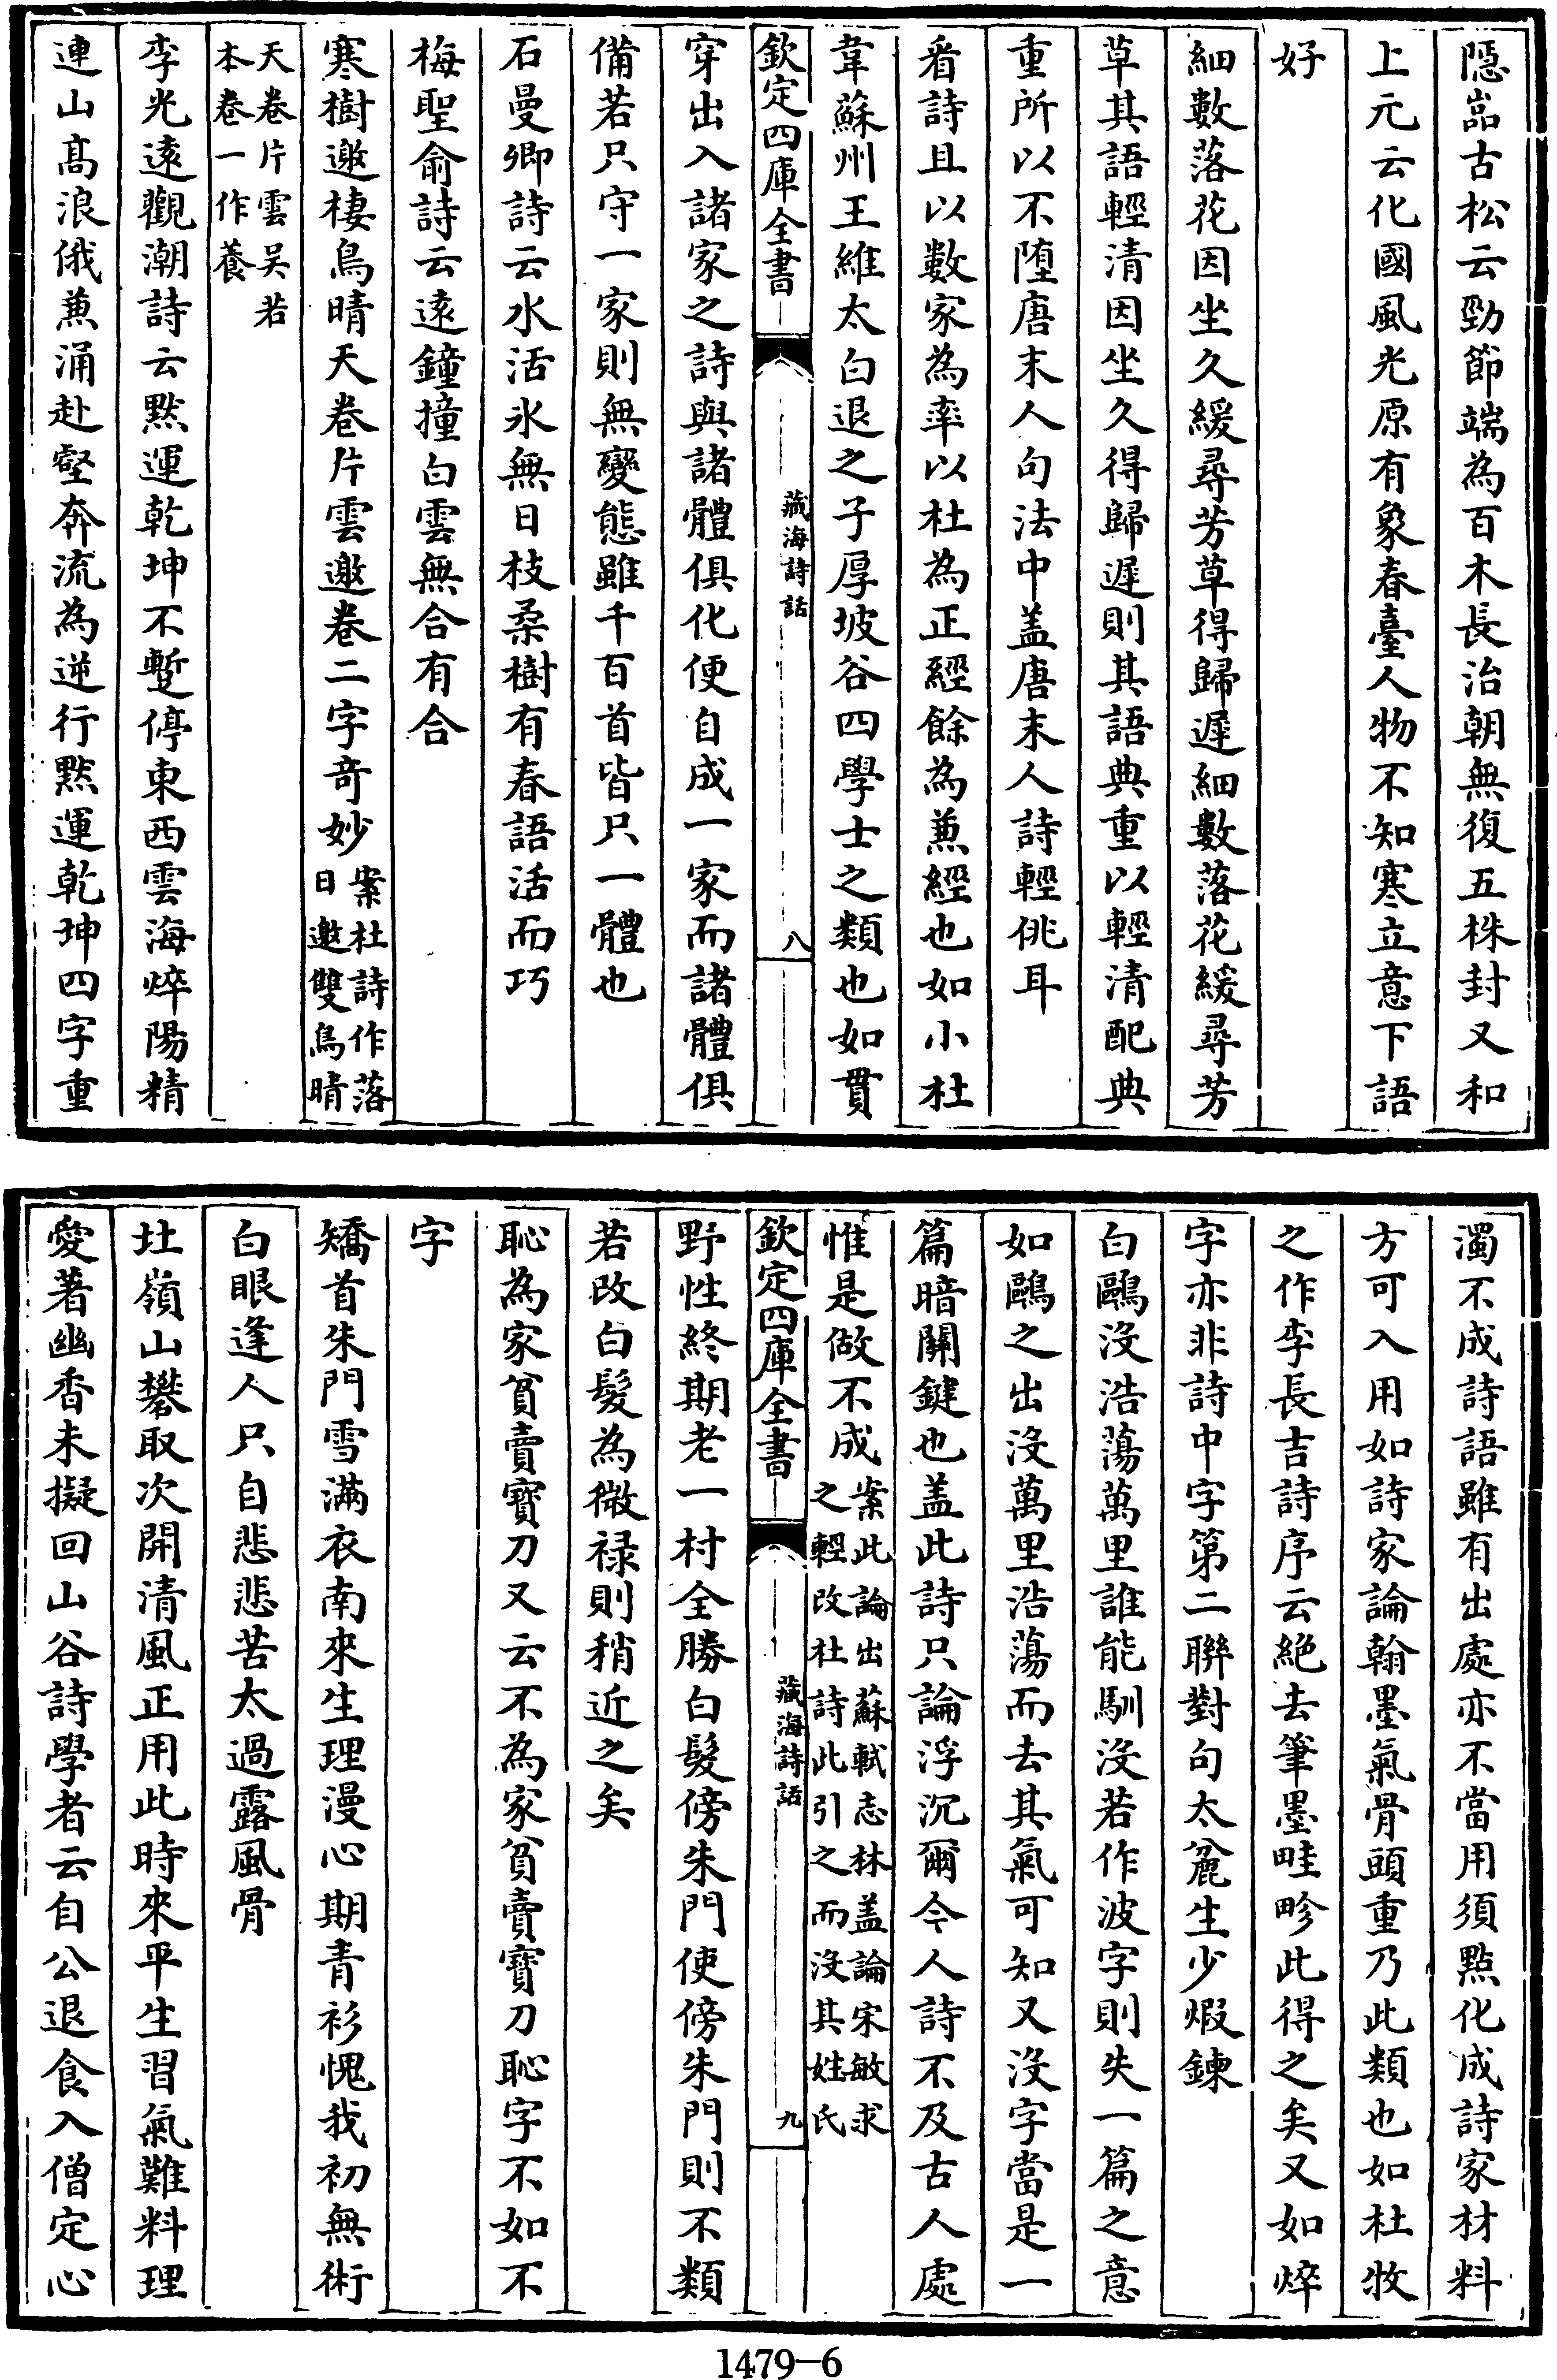 隠嵓古松云勁節端為百木長治朝無復五株封又和
上元云化國風光原有象春臺人物不知寒立意下語
好
細數落花因坐久緩尋芳草得歸遲細數落花緩尋芳
草其語輕清因坐久得歸遲則其語典重以輕清配典
重所以不堕唐末人句法中盖唐末人詩輕佻耳
看詩且以數家為率以杜為正經餘為兼經也如小杜
韋蘇州王維太白退之子厚坡谷四學士之類也如貫
欽定四庫全書
藏海詩話
八
穿出入諸家之詩與諸體俱化便自成一家而諸體俱
備若只守一家則無變態雖千百首皆只一體也
石曼卿詩云水活氷無日枝柔樹有春語活而巧
梅聖俞詩云遠鐘撞白雲無合有合
寒樹邀棲鳥晴天卷片雲邀卷二字奇妙案杜詩作落
日邀雙鳥晴
天卷片雲吴若
本卷一作養
李光遠觀潮詩云黙運乾坤不暫停東西雲海焠陽精
連山髙浪俄兼涌赴壑奔流為逆行黙運乾坤四字重
濁不成詩語雖有出處亦不當用須㸃化成詩家材料
方可入用如詩家論翰墨氣骨頭重乃此類也如杜牧
之作李長吉詩序云絶去筆墨畦畛此得之矣又如焠
字亦非詩中字第二聯對句太麄生少煆鍊
白鷗沒浩蕩萬里誰能馴沒若作波字則失一篇之意
如鷗之出沒萬里浩蕩而去其氣可知又沒字當是一
篇暗關鍵也盖此詩只論浮沉爾今人詩不及古人處
惟是做不成案此論出蘇軾志林盖論宋敏求
之輕改杜詩此引之而沒其姓氏
欽定四庫全書
藏海詩話
九
野性終期老一村全勝白髮傍朱門使傍朱門則不類
若改白髮為微禄則稍近之矣
恥為家貧賣寳刀又云不為家貧賣寳刀恥字不如不
字
矯首朱門雪滿衣南來生理漫心期青衫愧我初無術
白眼逢人只自悲悲苦太過露風骨
圡嶺山礬取次開清風正用此時來平生習氣難料理
愛著幽香未擬回山谷詩學者云自公退食入僧定心
1479—6